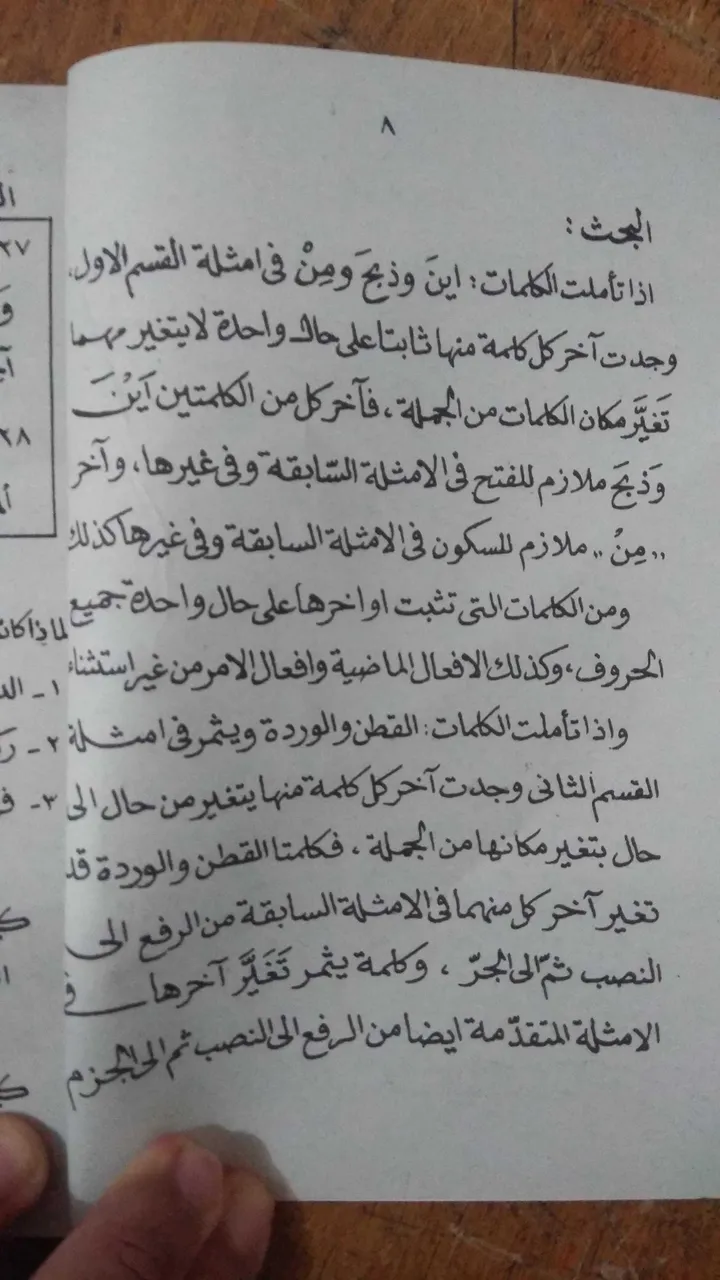 ٨
البحث :
اذا تأملت الكلمات : اينَ وذبحَ ومِنْ فى امثلة القسم الاول،
وجدت آخر كل كلمة منها ثابتا على حال واحدة لا يتغير مهما
تَغيَّر مكان الكلمات من الجملة ، فآخر كل من الكلمتين اَيْنَ
وَذبحَ ملازم للفتح فى الامثلة السّابقة وفى غيرها، وآخر
,, مِنْ ,, ملازم للسكون فى الامثلة السابقة وفى غيرها كذلك
ومن الكلمات التى تثبت اواخرها على حال واحدة جميع
الحروف، وكذلك الافعال الماضية وافعال الامر من غير استثناء
واذا تأملت الكلمات : القطن والوردة ويثمر فى امثلة
القسم الثانى وجدت آخر كل كلمة منها يتغير من حال الى
حال بتغير مكانها من الجملة ، فكلمتا القطن والوردة قد
تغير آخر كل منهما فى الامثلة السابقة من الرفع الى
النصب ثمّ الى الجرّ ، وكلمة يثمر تَغَيَّر آخرها فى
الامثلة المتقدّمة ايضا من الرفع الى النصب ثم الى الجزم
٣٧
٣٨
لماذا كان
١ -
٢ -
٣ -